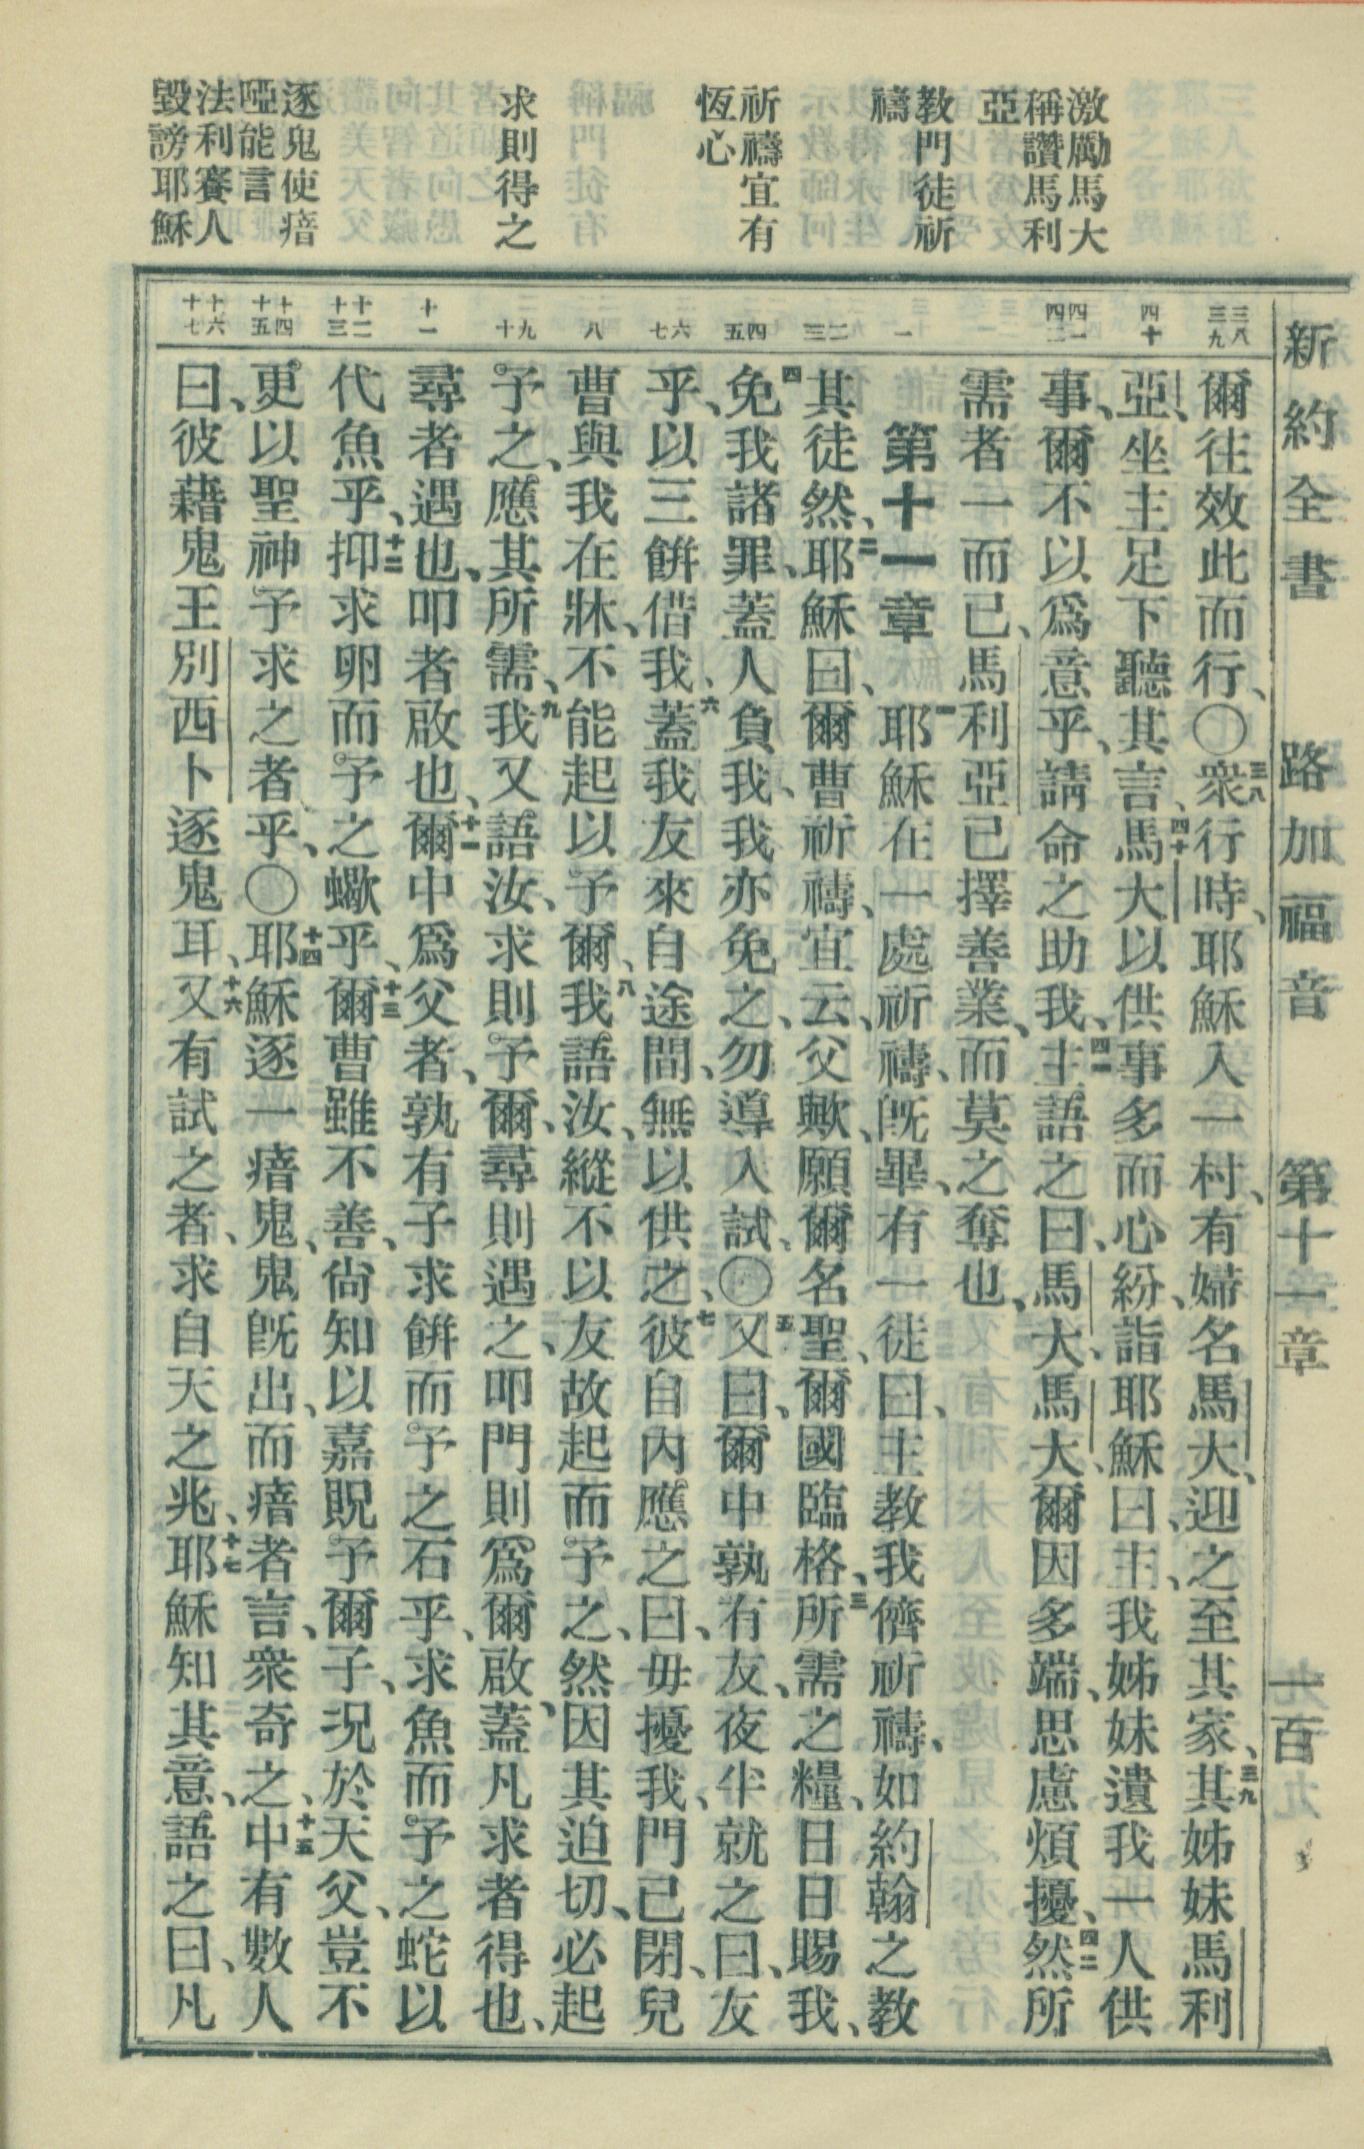 新約全書 路加福音 第十一章 一百九
激勵馬大
稱讚馬利
亞
教門徒祈
禱
祈禱宜有
恆心
求則得之
逐鬼使瘖
啞能言
法利賽人
毀謗耶穌
三八 三九
四十
四一 四二
一
二 三
四 五
六 七
八
九 十
十一
十二 十三
十四 十五
十六 十七
爾往效此而行、〇三八衆行時、耶穌入一村、有婦名馬大、迎之至其家、三九其姊妹馬利
亞、坐主足下聽其言、四十馬大以供事多而心紛、詣耶穌曰、主、我姊妹遺我一人供
事、爾不以爲意乎、請命之助我、四一主語之曰、馬大、馬大、爾因多端、思慮煩擾、四二然所
需者一而已、馬利亞已擇善業、而莫之奪也、
第十一章 一耶穌在一處祈禱、旣畢、有一徒曰、主教我儕祈禱、如約翰之教
其徒然、二耶穌曰、爾曹祈禱、宜云、父歟、願爾名聖、爾國臨格、三所需之糧、日日賜我、
四免我諸罪、蓋人負我、我亦免之、勿導入試、〇五又曰、爾中孰有友、夜半就之曰、友
乎、以三餅借我、六蓋我友來自途間、無以供之、七彼自內應之曰、毋擾我、門已閉、兒
曹與我在牀、不能起以予爾、八我語汝、縱不以友故起而予之、然因其迫切、必起
予之、應其所需、九我又語汝、求則予爾、尋則遇之、叩門則爲爾啟、十蓋凡求者得也、
尋者遇也、叩者啟也、十一爾中爲父者、孰有子求餅而予之石乎、求魚而予之蛇以
代魚乎、十二抑求卵而予之蠍乎、十三爾曹雖不善、尙知以嘉貺予爾子、況於天父、豈不
更以聖神予求之者乎、〇十四耶穌逐一瘖鬼、鬼旣出、而瘖者言、衆奇之、十五中有數人
曰、彼藉鬼王別西卜逐鬼耳、十六又有試之者、求自天之兆、十七耶穌知其意、語之曰、凡